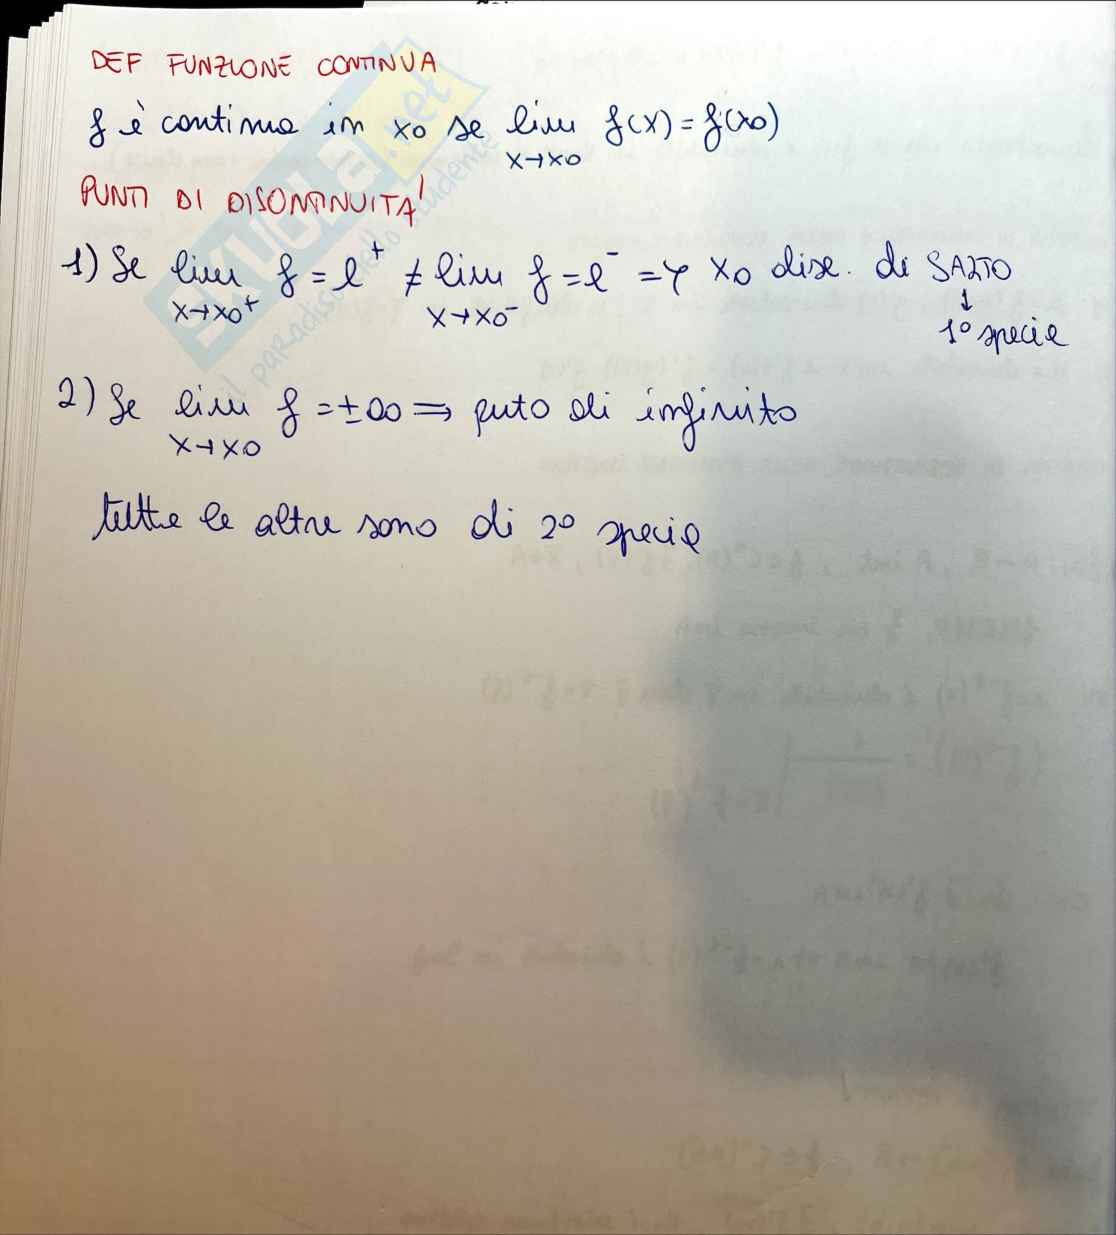 DEF FUNZIONE CONTINUA
f è continua in x0 se lim f(x) = f(x0)
x→x0
PUNTI DI DISCONTINUITA'
1) Se lim f = l⁺ ≠ lim f = l⁻ => x0 disc. di SALTO
x→x0⁺ x→x0⁻ ↓
1° specie
2) Se lim f = ±∞ => punto di infinito
x→x0
tutte le altre sono di 2° specie
SKUOLA.net
il paradiso dello studente